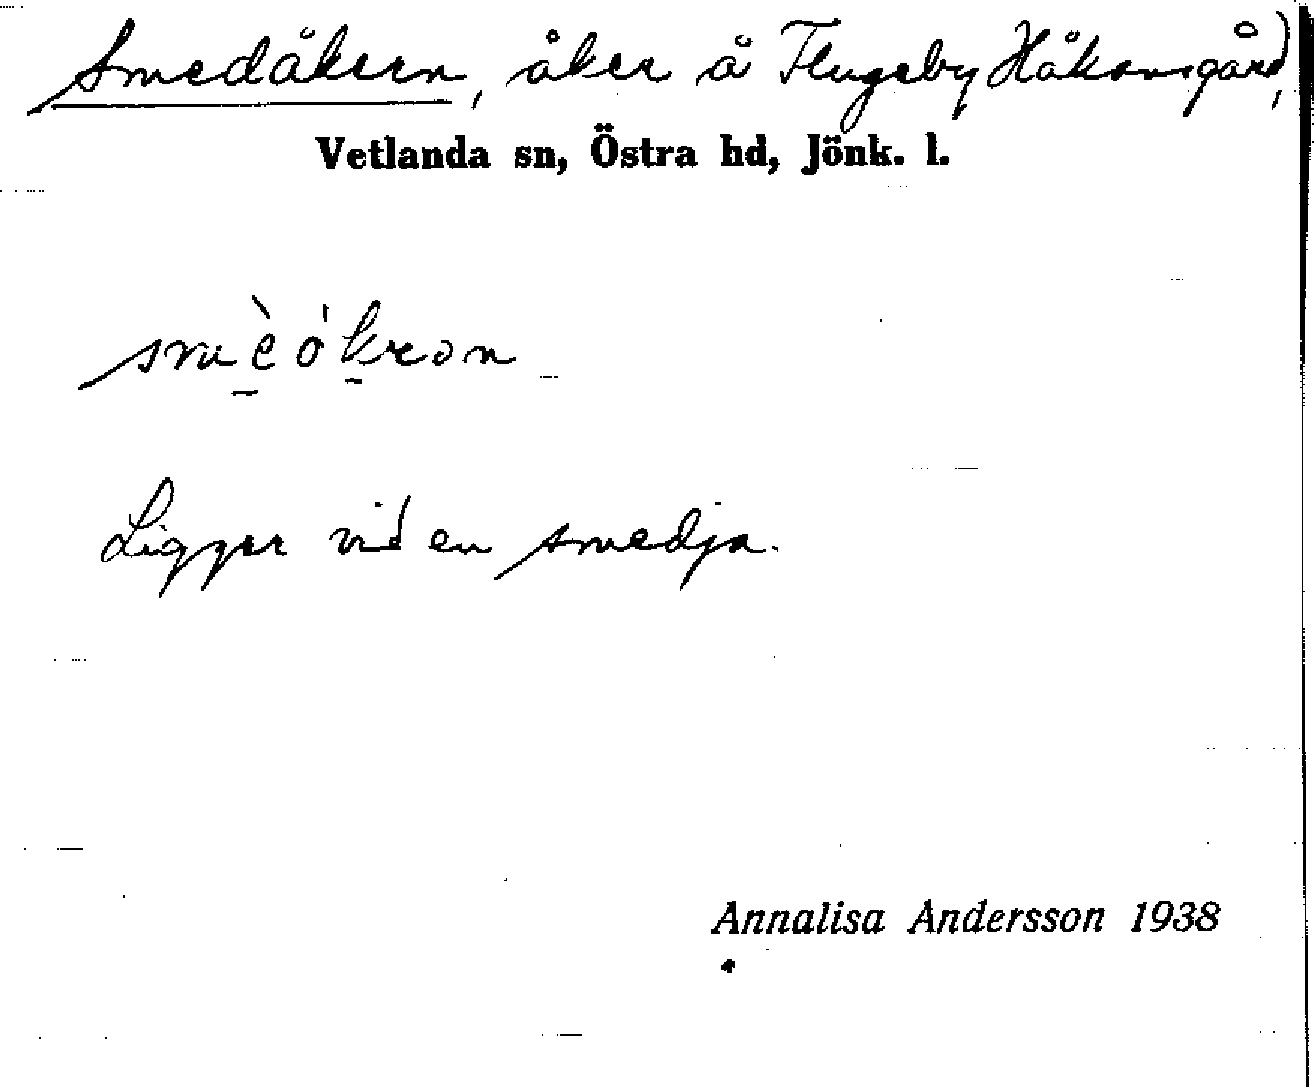 Smedåkern, åker å Flugeby Håkansgård,
Vetlanda sn, Östra hd, Jönk. l.
smèókron
Ligger vid en smedja.
Annalisa Andersson 1938